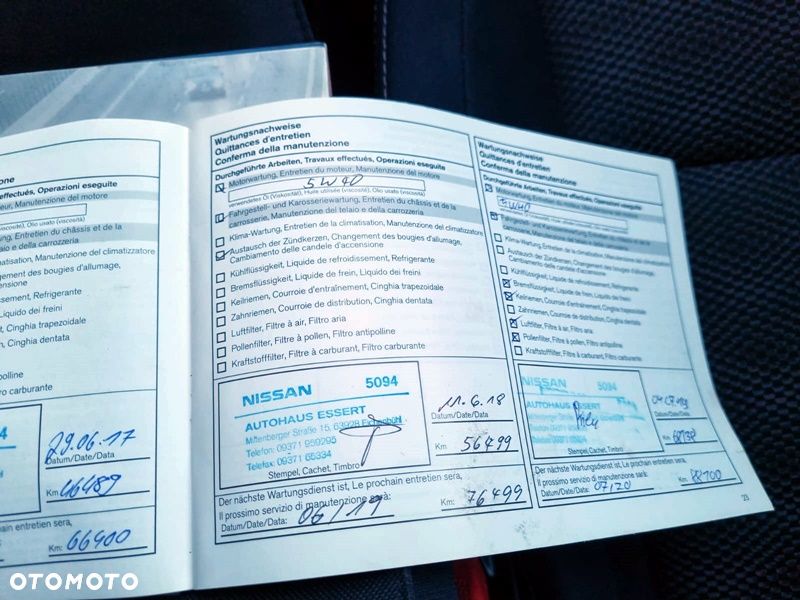 one
ffectués, Operazioni eseguite
teur, Manutenzione del motore
e (viscosité), Olio usato (viscosità)
ng, Entretien du châssis et de la
del telaio e della carrozzeria
matisation, Manutenzione del climatizzatore
ngement des bougies d'allumage,
ensione
dissement, Refrigerante
Liquido dei freini
nt, Cinghia trapezoidale
on, Cinghia dentata
polline
iltro carburante
29.06.17
Datum/Date/Data
Km: 46489
hain entretien sera,
Km: 66400
Wartungsnachweise
Quittances d'entretien
Conferma della manutenzione
Durchgeführte Arbeiten, Travaux effectués, Operazioni eseguite
Motorwartung, Entretien du moteur, Manutenzione del motore
5W40
verwendetes Öl (Viskosität), Huile utilisée (viscosité), Olio usato (viscosità)
Fahrgestell- und Karosseriewartung, Entretien du châssis et de la
carrosserie, Manutenzione del telaio e della carrozzeria
Klima-Wartung, Entretien de la climatisation, Manutenzione del climatizzatore
Austausch der Zündkerzen, Changement des bougies d'allumage,
Cambiamento delle candele d'accensione
Kühlflüssigkeit, Liquide de refroidissement, Refrigerante
Bremsflüssigkeit, Liquide de frein, Liquido dei freini
Keilriemen, Courroie d'entraînement, Cinghia trapezoidale
Zahnriemen, Courroie de distribution, Cinghia dentata
Luftfilter, Filtre à air, Filtro aria
Pollenfilter, Filtre à pollen, Filtro antipolline
Kraftstofffilter, Filtre à carburant, Filtro carburante
NISSAN 5094
AUTOHAUS ESSERT
Miltenberger Straße 15, 63928 Eichenbühl
Telefon: 09371 959295
Telefax: 09371 65334
Stempel, Cachet, Timbro
11.6.18
Datum/Date/Data
Km: 56499
Der nächste Wartungsdienst ist, Le prochain entretien sera,
Il prossimo servizio di manutenzione sarà:
Datum/Date/Data: 06/19 Km: 76499
Wartungsnachweise
Quittances d'entretien
Conferma della manutenzione
Durchgeführte Arbeiten, Travaux effectués, Operazioni eseguite
Motorwartung, Entretien du moteur, Manutenzione del motore
5W40
Fahrgestell- und Karosseriewartung, Entretien du châssis et de la
carrosserie, Manutenzione del telaio e della carrozzeria
Klima-Wartung, Entretien de la climatisation, Manutenzione del climatizzatore
Austausch der Zündkerzen, Changement des bougies d'allumage,
Cambiamento delle candele d'accensione
Kühlflüssigkeit, Liquide de refroidissement, Refrigerante
Bremsflüssigkeit, Liquide de frein, Liquido dei freini
Keilriemen, Courroie d'entraînement, Cinghia trapezoidale
Zahnriemen, Courroie de distribution, Cinghia dentata
Luftfilter, Filtre à air, Filtro aria
Pollenfilter, Filtre à pollen, Filtro antipolline
Kraftstofffilter, Filtre à carburant, Filtro carburante
NISSAN 5094
AUTOHAUS ESSERT
Stempel, Cachet, Timbro
Datum/Date/Data
Km:
Der nächste Wartungsdienst ist, Le prochain entretien sera,
Il prossimo servizio di manutenzione sarà:
Datum/Date/Data: 07/20 Km:
23
OTOMOTO